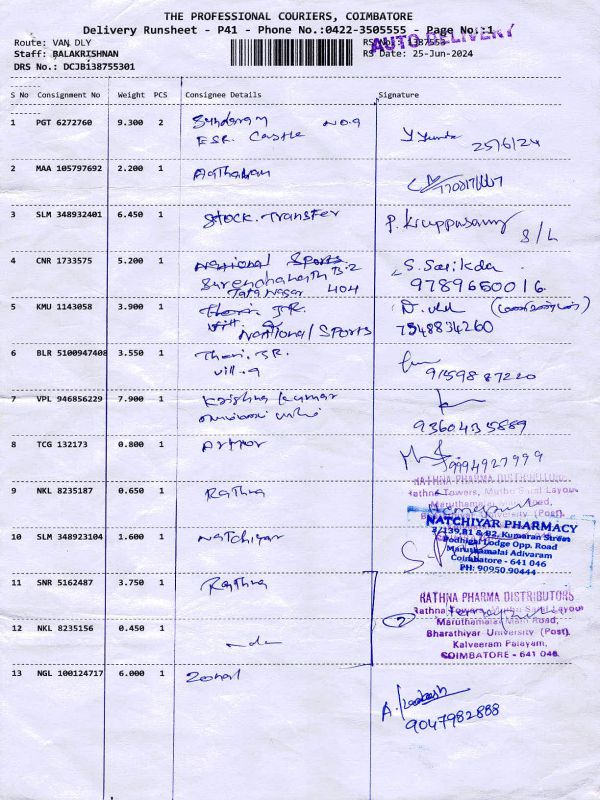 THE PROFESSIONAL COURIERS, COIMBATORE
Delivery Runsheet - P41 - Phone No.:0422-3505555 - Page No.:1
AUTO DELIVERY
Route: VAN DLY
Staff: BALAKRISHNAN
RS Date: 25-Jun-2024
DRS No.: DCJB138755301
S No Consignment No Weight PCS Consignee Details Signature
1 PGT 6272760 9.300 2 Sundaram NO.9
ESR. Castle
25/6/24
2 MAA 105797692 2.200 1
3 SLM 348932401 6.450 1 Stock. Transfer P. Kruppusamy
S/L
4 CNR 1733575 5.200 1 National Sports S. Sarikda
Surendhanath B.2
Tata Nagar 404
9789660016
5 KMU 1143058 3.900 1 Thari. J.R.
National Sports
7548834260
6 BLR 5100947408 3.550 1 Thari. J.R.
Vill-9
9159887220
7 VPL 946856229 7.900 1 Krishna Kumar
9360435889
8 TCG 132173 0.800 1
9994927999
9 NKL 8235187 0.650 1 Rathna
RATHNA PHARMA DISTRIBUTORS
Rathna Towers, Muthu Layout
Maruthamalai Road,
Bharathiyar University (Post),
10 SLM 348923104 1.600 1 Natchiyar
NATCHIYAR PHARMACY
2/139,B1 & B2, Kumaran Street
Lodge Opp. Road
Maruthamalai Adivaram
Coimbatore - 641 046
PH: 90950 90444
11 SNR 5162487 3.750 1 Rathna
RATHNA PHARMA DISTRIBUTORS
Rathna Towers, Layout
2 Maruthamalai Main Road,
12 NKL 8235156 0.450 1
Bharathiyar University (Post),
Kalveeram Palayam,
COIMBATORE - 641 046.
13 NGL 100124717 6.000 1 Zonal
9047982888